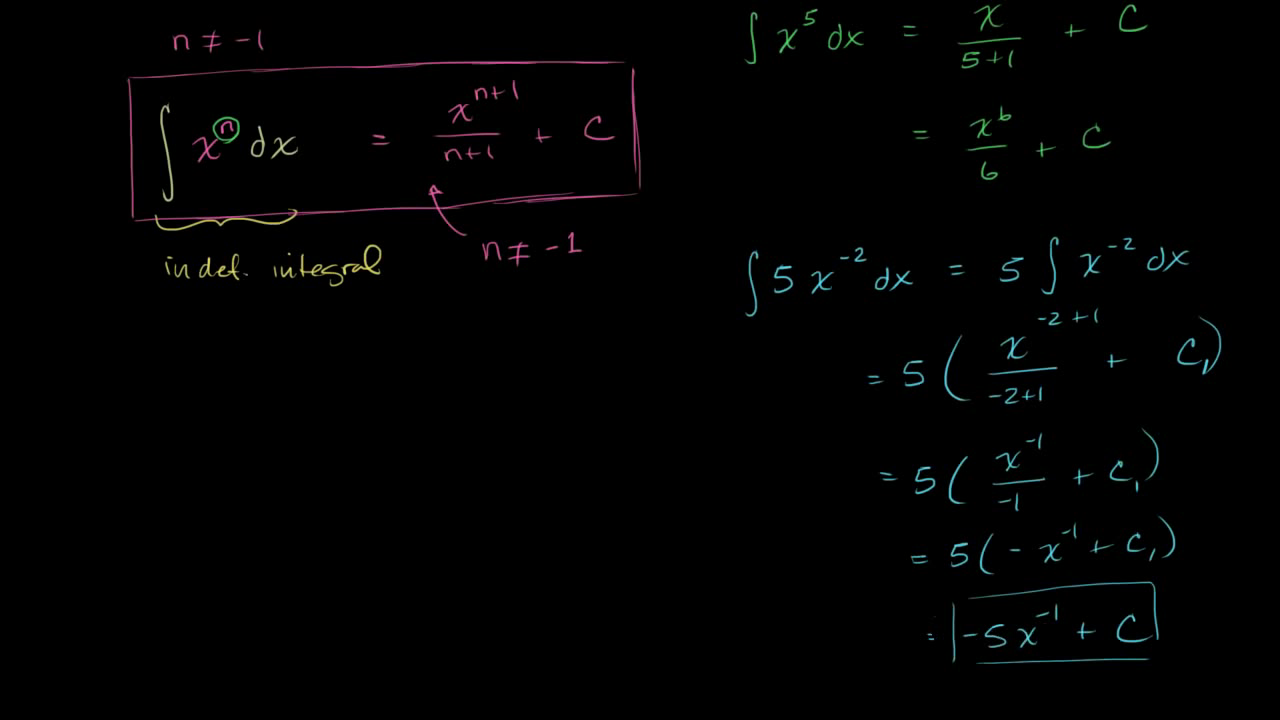 n ≠ -1
∫ xⁿ dx = xⁿ⁺¹/(n+1) + C
n ≠ -1
indef. integral
∫ x⁵ dx = x/(5+1) + C
= x⁶/6 + C
∫ 5 x⁻² dx = 5 ∫ x⁻² dx
= 5 ( x⁻²⁺¹/(-2+1) + C₁)
= 5 ( x⁻¹/-1 + C₁)
= 5 ( - x⁻¹ + C₁)
= -5x⁻¹ + C